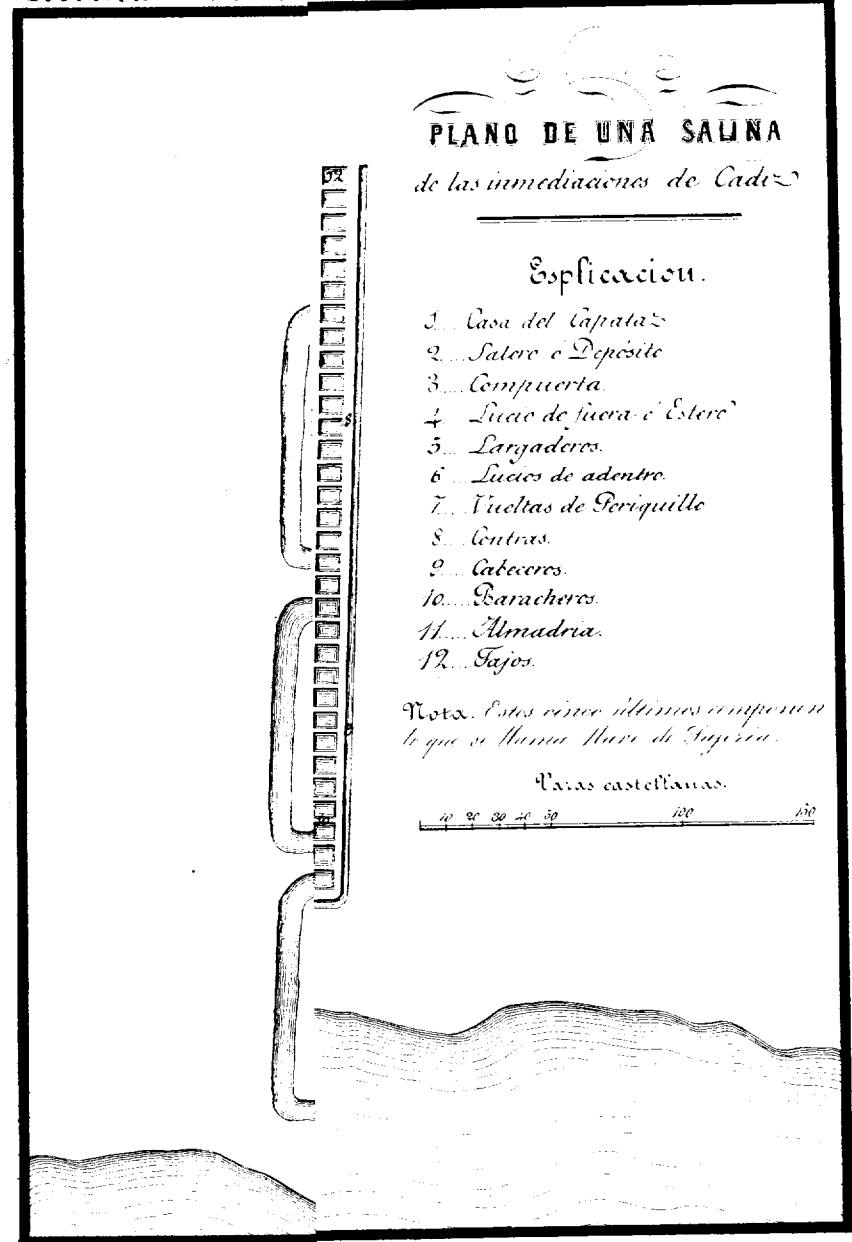 PLANO DE UNA SALINA
de las inmediaciones de Cadiz
Esplicacion.
1.... Casa del Capataz
2.... Salero ó Depósito
3.... Compuerta.
4.... Lucio de fuera ó Estero
5.... Largaderos.
6.... Lucios de adentro.
7.... Vueltas de Periquillo
8.... Contras.
9.... Cabeceros.
10.... Baracheros.
11.... Almadria.
12.... Tajos.
Nota. Estos cinco últimos componen
lo que se llama Nave de Tajeria.
Varas castellanas.
10 20 30 40 50 100 150
12
8